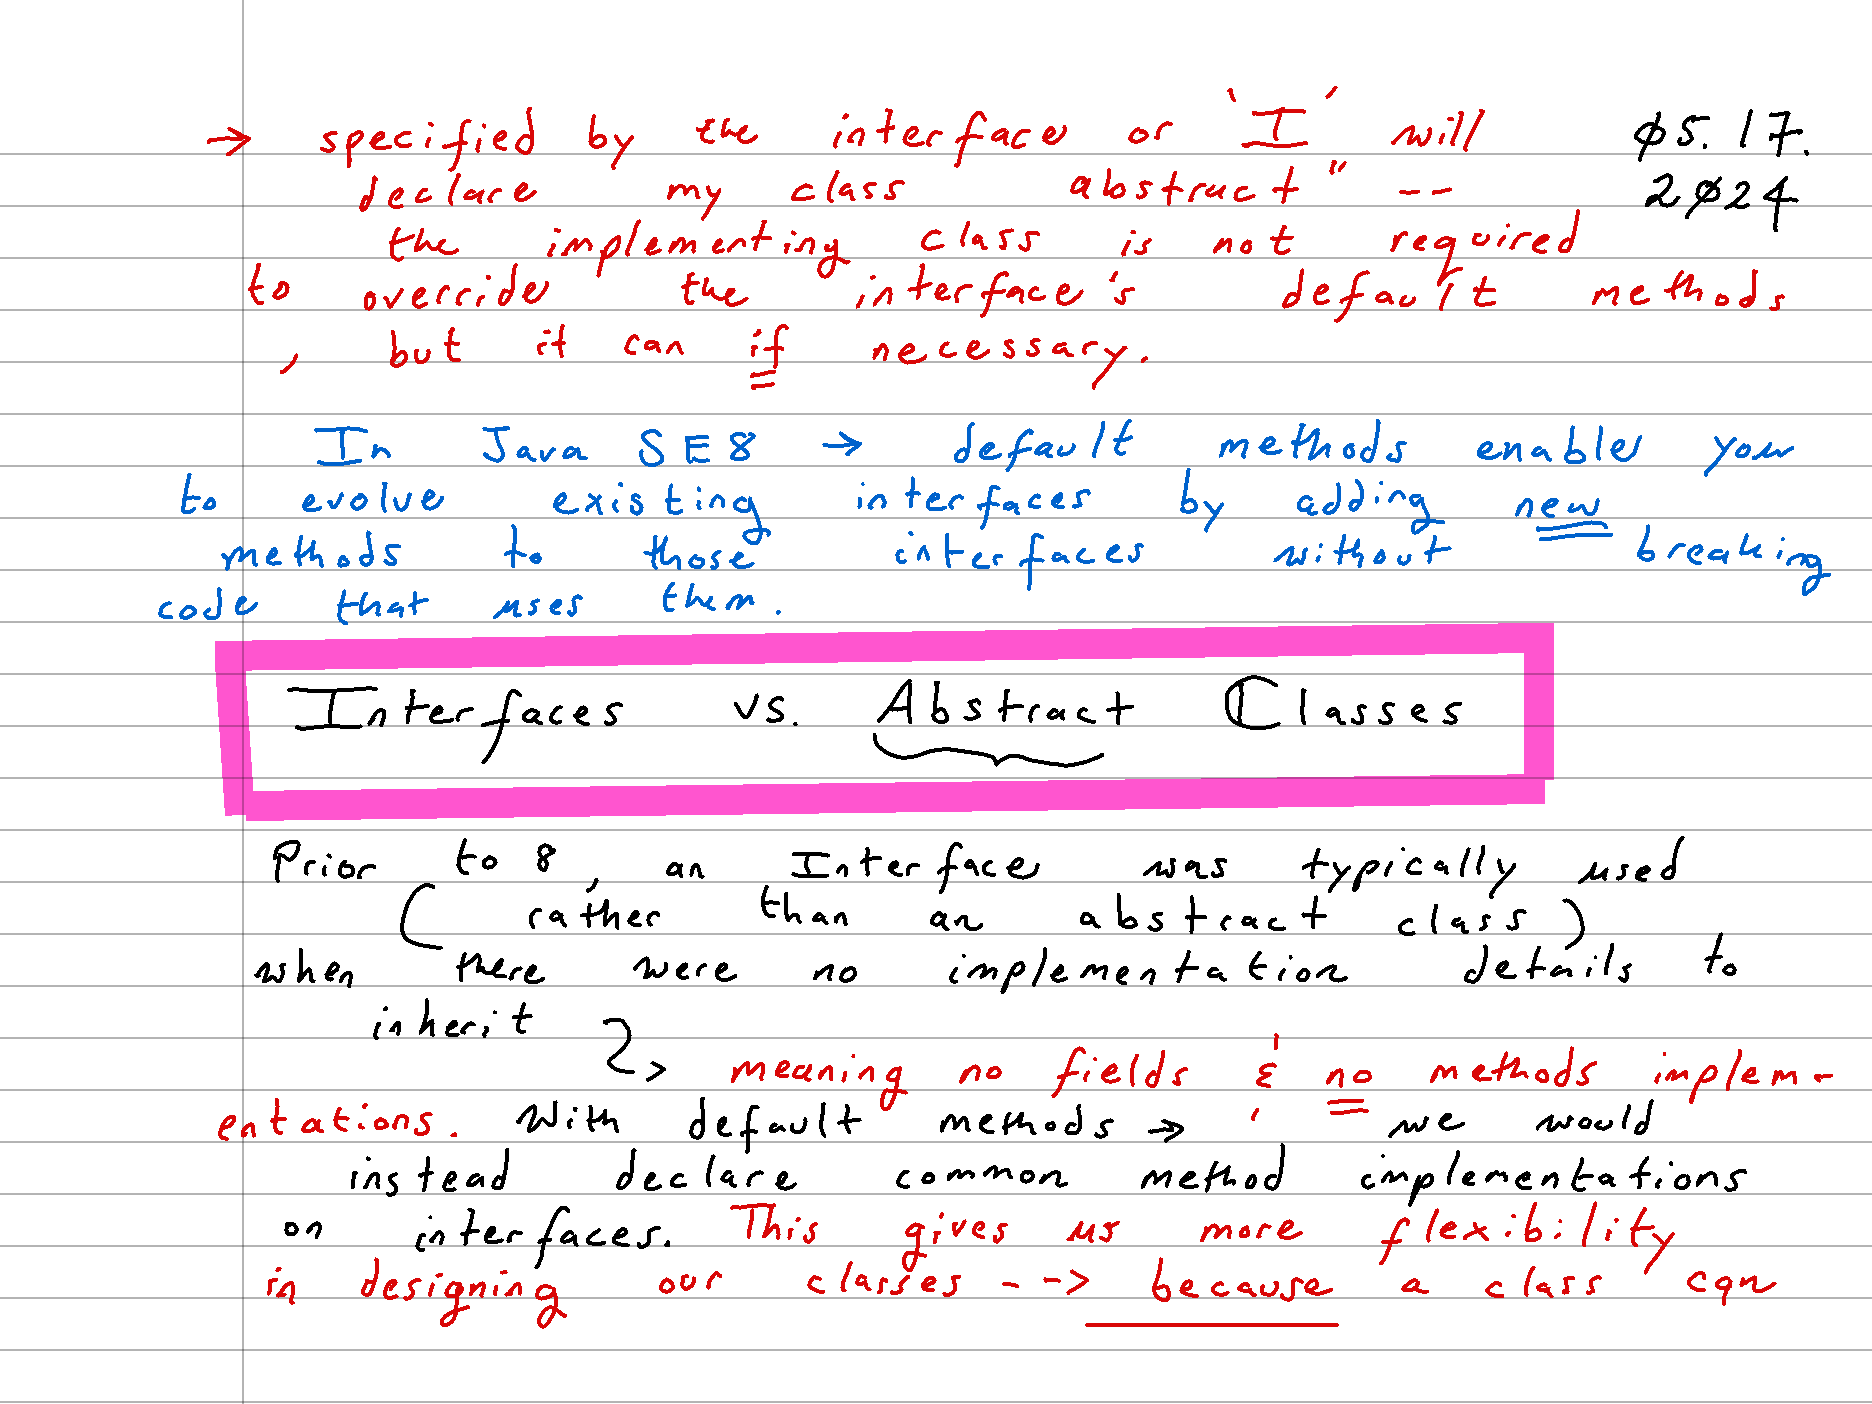 → specified by the interface or 'I' will
declare my class abstract" --
the implementing class is not required
to override the interface's default methods
, but it can if necessary.
ø5.17.
2ø24
In Java SE8 → default methods enable you
to evolve existing interfaces by adding new
methods to those interfaces without breaking
code that uses them.
Interfaces vs. Abstract Classes
Prior to 8, an Interface was typically used
( rather than an abstract class )
when there were no implementation details to
inherit
→ meaning no fields & no methods implem-
entations. With default methods → we would
instead declare common method implementations
on interfaces. This gives us more flexibility
in designing our classes --> because a class can